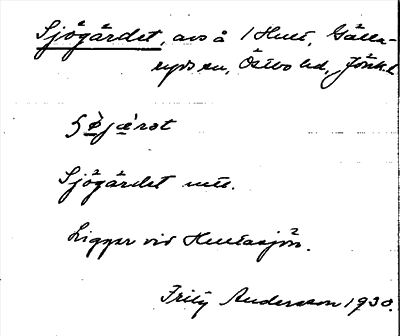 Sjögärdet, avs å 1 Hult, Gälla-
ryds sn, Östbo hd, Jönk.l
Sjögärdet mt.
Ligger vid Hultasjön.
Fritz Andersson 1930.